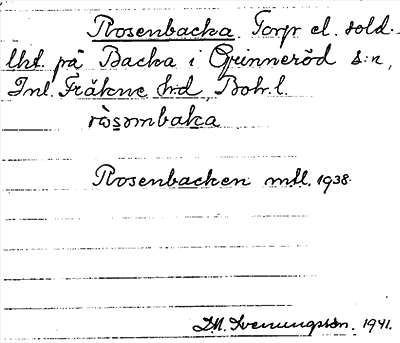 Rosenbacka. Torp el. sold.-
lht. på Backa i Grinneröd s:n,
Inl. Fräkne hd, Boh. l.
ròsombaka
Rosenbacken mtl. 1938.
D.M. Svenungsson. 1941.